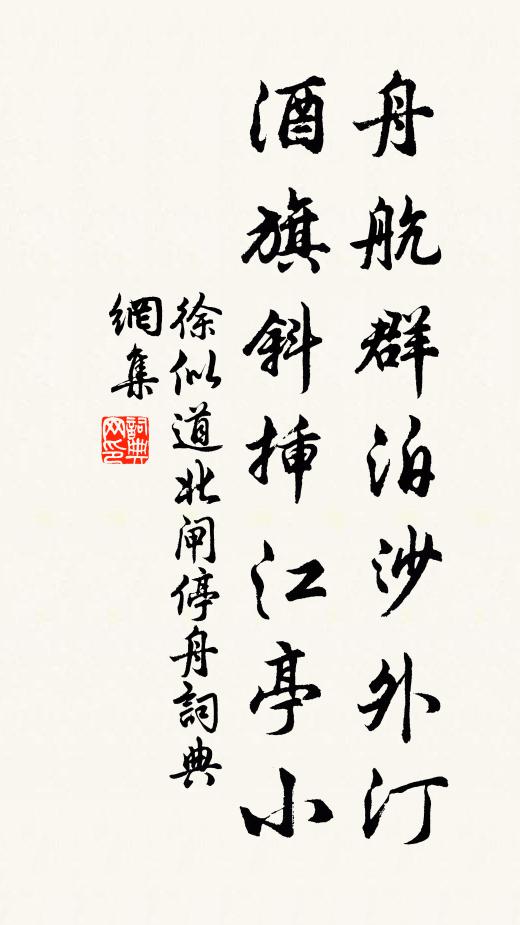 舟航群泊沙外汀
酒旗斜揷江亭小
徐似道北闸停舟詞典
網集
詞典
网印